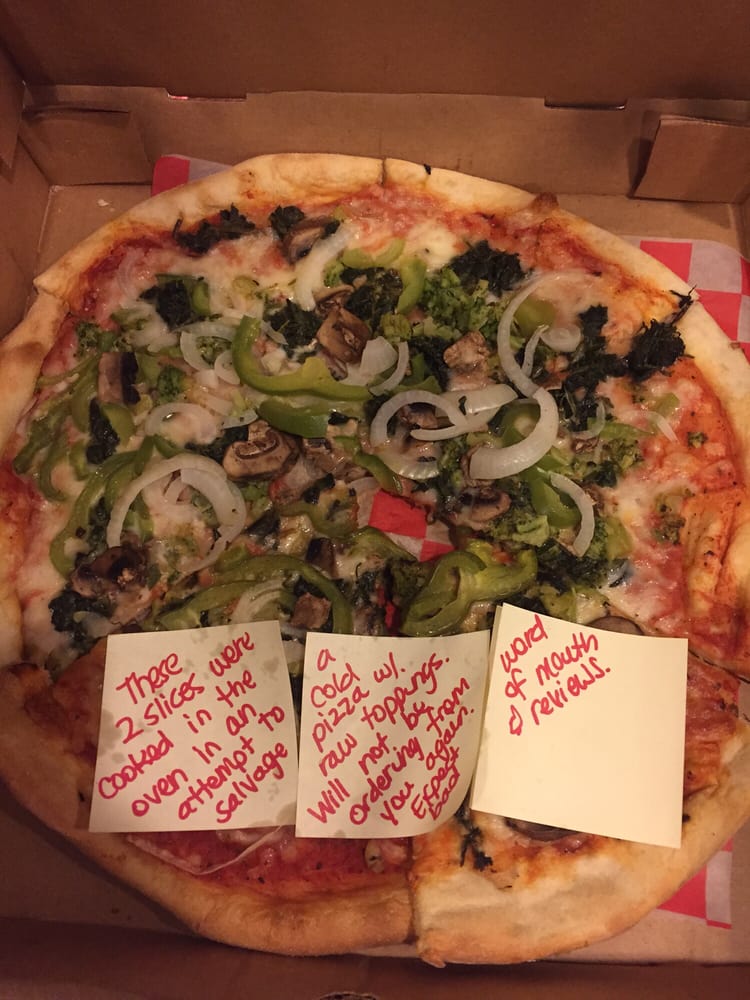 These
2 slices were
cooked in the
oven in an
attempt to
salvage
a
cold
pizza w/.
raw toppings.
Will not be
ordering from
you again.
Expect
bad
word
of mouth
& reviews.